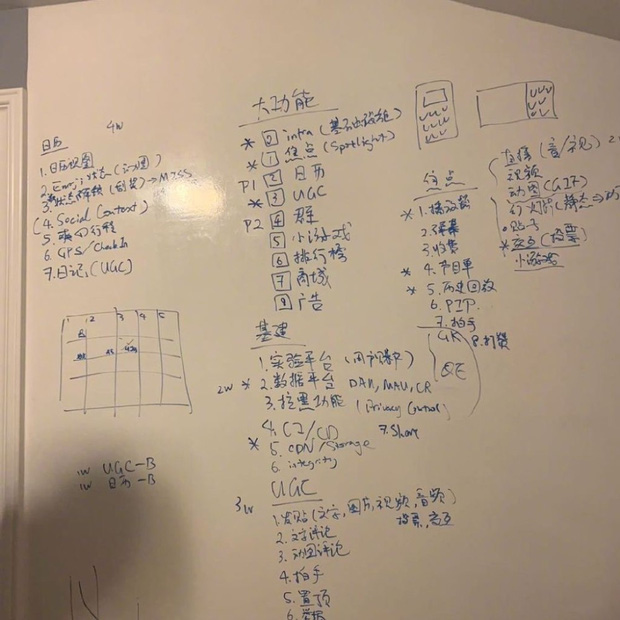 日历 4W
1. 日历视图
2. Emoji 状态 (动图)
3. → MJSS
4. Social Context)
5. 行程
6. GPS/Check In
7. 日记 (UGC)
1 2 3 4 5
1W UGC-B
1W 日历-B
大功能
* 0 infra (基础设施)
* 1 焦点 (Spotlight)
P1 2 日历
* 3 UGC
P2 4 群
5 小游戏
6 排行榜
7 商城
8 广告
基建
1. 实验平台
2W * 2. 数据平台 DAU, MAU, CR
3. 拉黑功能 (Privacy Control)
4. CI/CD 7. Share
* 5. CDN/Storage
6. integrity
UGC
3W 1. 发贴 (文字, 图片, 视频, 音频)
投票, 交互
2. 文字评论
3. 动图评论
4. 拍手
5. 置顶
6. 举报
焦点
* 1. 播放器
2. 弹幕
3. 收集
* 4. 节目单
* 5. 历史回放
6. PIP
7. 拍手
8. 打赏
GK
QE
直播 (音/视)
视频
动图 (GIF)
幻灯片
贴子
* 交互 (投票)
小游戏